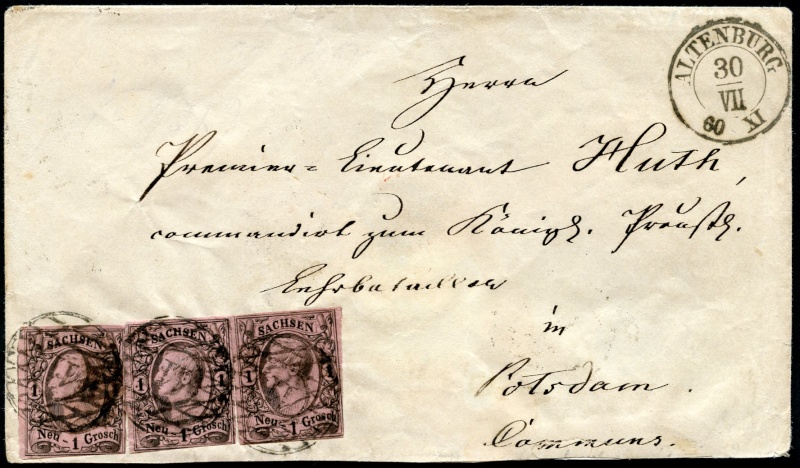 ALTENBURG
30
VII
60 XI
Herrn
Premier-Lieutenant Huth,
commandirt zum Königl. Preuß.
Lehrbataillon
in
Potsdam.
SACHSEN
1 1
Neu-1 Grosch
SACHSEN
1 1
Neu-1 Grosch
SACHSEN
1 1
Neu-1 Grosch